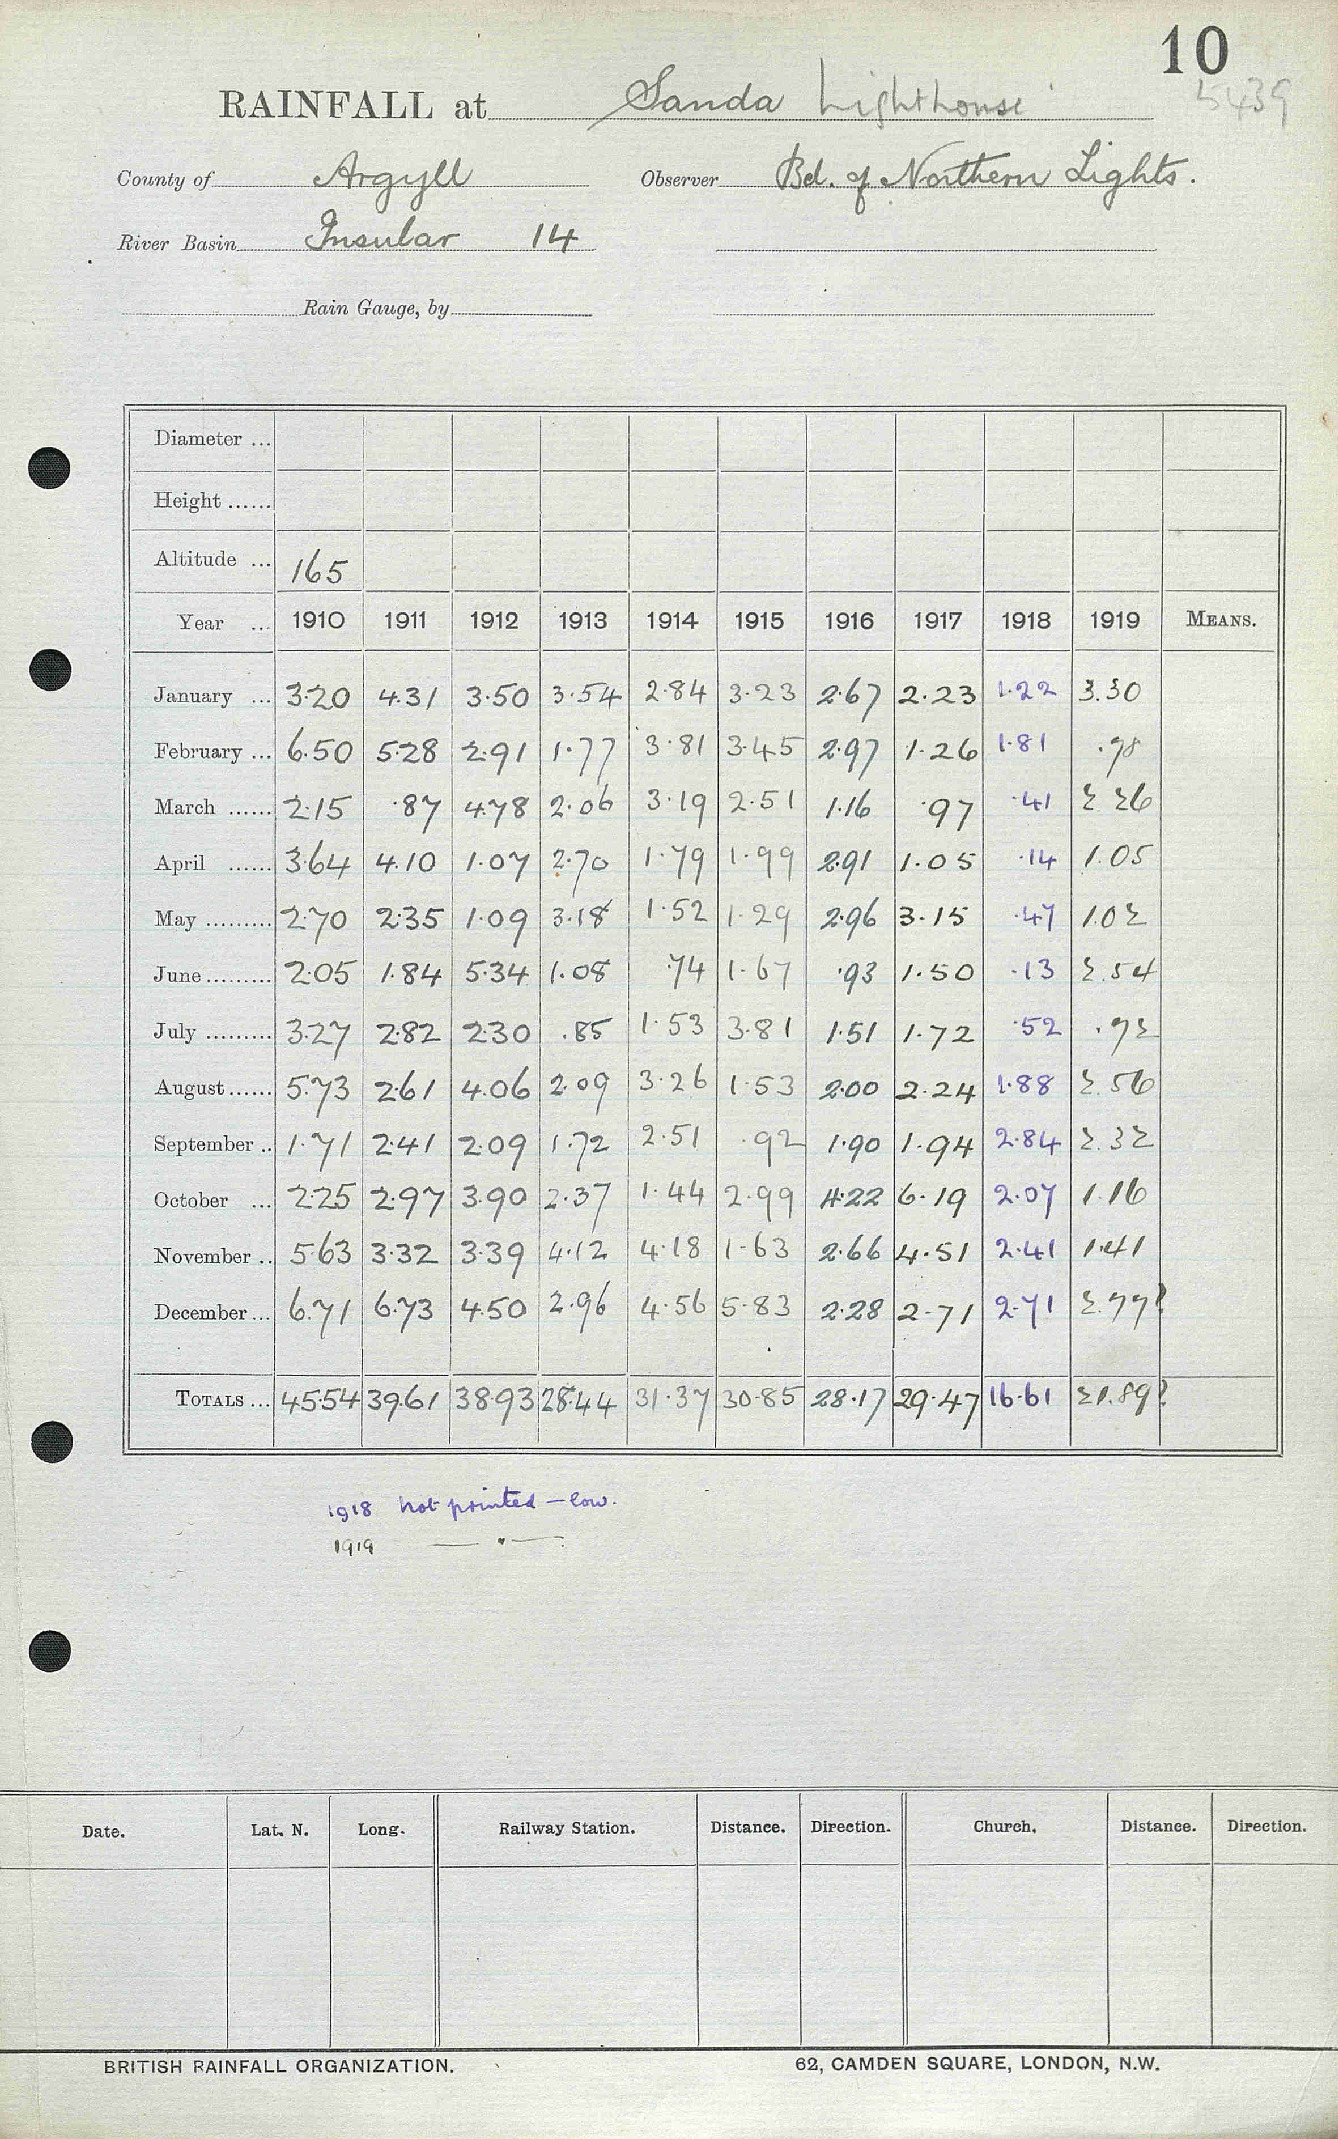 10
RAINFALL at Sanda Lighthouse 5439
County of Argyll Observer Bd. of Northern Lights.
River Basin Insular 14
Rain Gauge, by
Diameter ...
Height ......
Altitude ... 165
Year ... 1910 1911 1912 1913 1914 1915 1916 1917 1918 1919 MEANS.
January ... 3.20 4.31 3.50 3.54 2.84 3.23 2.67 2.23 1.22 3.30
February ... 6.50 5.28 2.91 1.77 3.81 3.45 2.97 1.26 1.81 .78
March ...... 2.15 .87 4.78 2.06 3.19 2.51 1.16 .97 .41 2.26
April ...... 3.64 4.10 1.07 2.70 1.79 1.99 2.91 1.05 .14 1.05
May ......... 2.70 2.35 1.09 3.18 1.52 1.29 2.96 3.15 .47 1.02
June ......... 2.05 1.84 5.34 1.08 .74 1.67 .93 1.50 .13 2.54
July ......... 3.27 2.82 2.30 .85 1.53 3.81 1.51 1.72 .52 .72
August ...... 5.73 2.61 4.06 2.09 3.26 1.53 2.00 2.24 1.88 2.56
September .. 1.71 2.41 2.09 1.72 2.51 .92 1.90 1.94 2.84 2.32
October ... 2.25 2.97 3.90 2.37 1.44 2.99 4.22 6.19 2.07 1.16
November .. 5.63 3.32 3.39 4.12 4.18 1.63 2.66 4.51 2.41 1.41
December ... 6.71 6.73 4.50 2.96 4.56 5.83 2.28 2.71 2.71 2.77?
TOTALS ... 45.54 39.61 38.93 28.44 31.37 30.85 28.17 29.47 16.61 21.89?
1918 not printed — low.
1919 — " —
Date. Lat. N. Long. Railway Station. Distance. Direction. Church. Distance. Direction.
BRITISH RAINFALL ORGANIZATION. 62, CAMDEN SQUARE, LONDON, N.W.